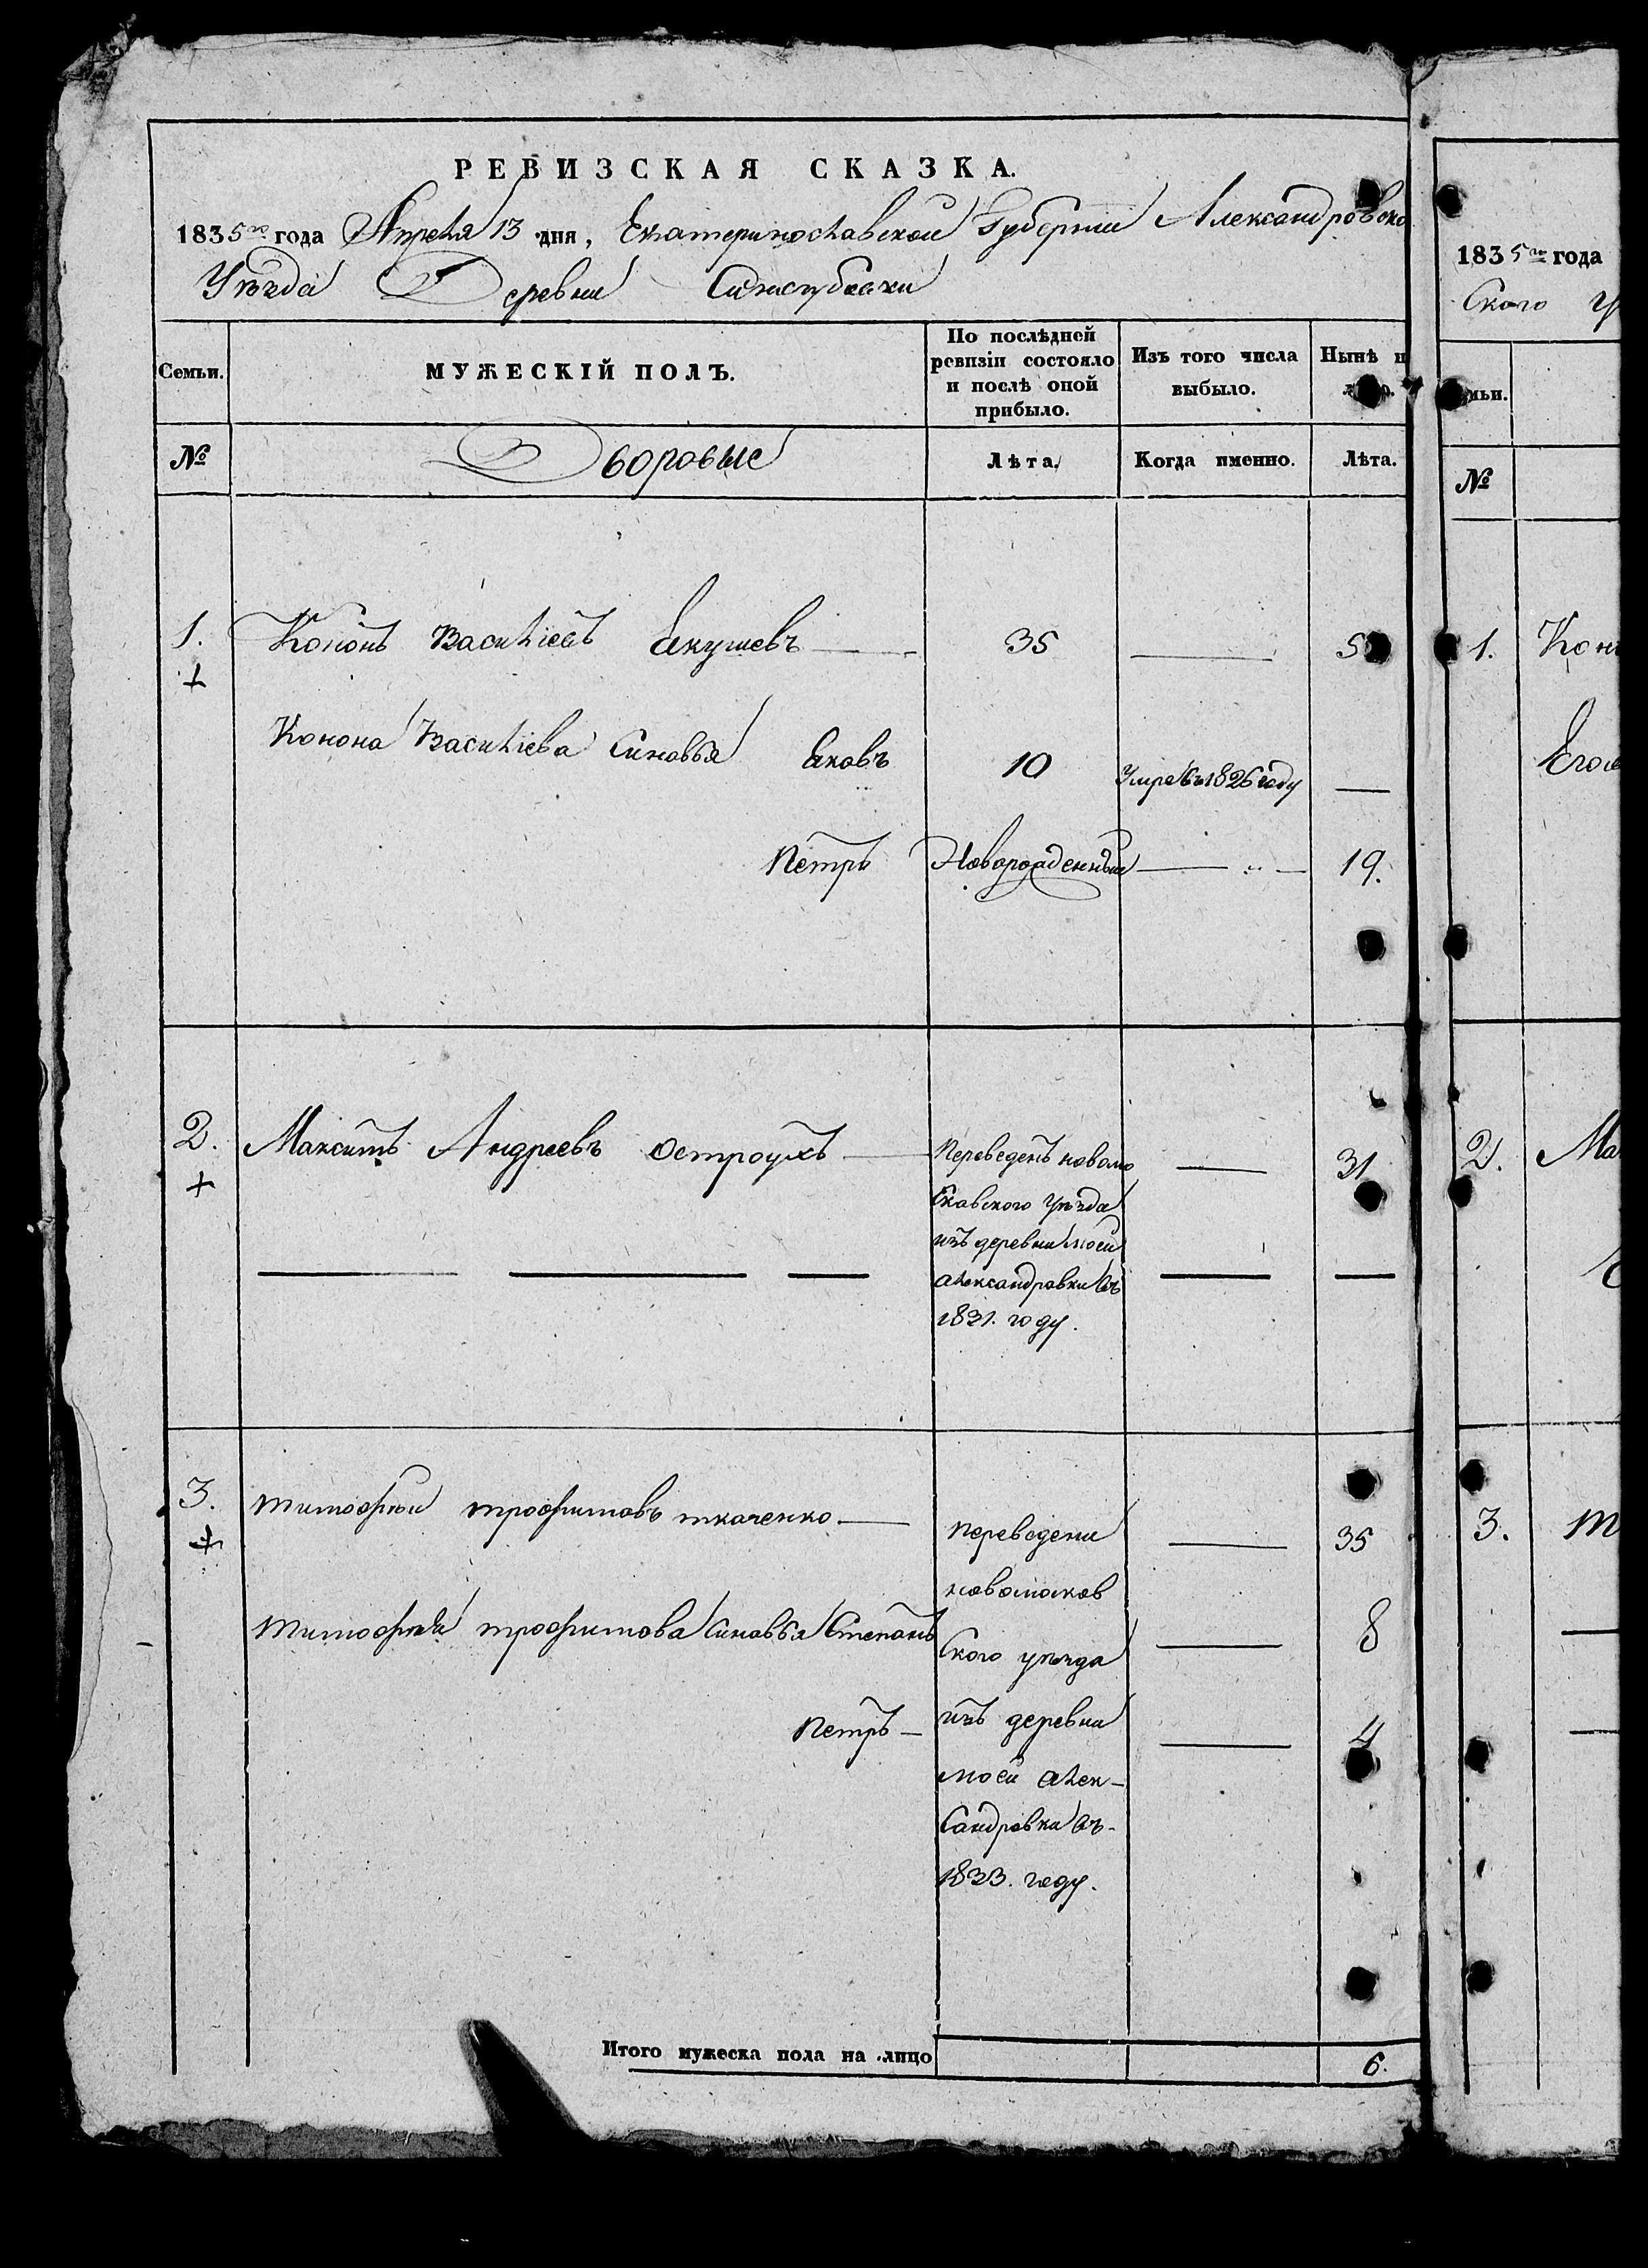 РЕВИЗСКАЯ СКАЗКА.
1835го года Апреля 13 дня, Екатеринославской Губернии Александровско
Уѣзда Деревни
Семьи. МУЖЕСКІЙ ПОЛЪ. По послѣдней ревизіи состояло и послѣ оной прибыло. Изъ того числа выбыло. Нынѣ н
№ Дворовые Лѣта. Когда именно. Лѣта.
1. Кононъ Василіевъ Екушевъ 35 5
Конона Василіева Синовья Яковъ 10 Умре въ 1826 году
Петръ Новорожденный 19.
2. Максимъ Андреевъ остроухъ Переведенъ новомо 31
сковского уѣзда
изъ деревни моей
александровки въ
1831. году.
3. тимофѣй трофимовъ ткаченко переведени 35
новомосков
тимофѣя трофимова синовья Степанъ ского уѣзда 8
Петръ изъ деревни 4
моей алек-
сандровки въ
1833. году.
Итого мужеска пола на лицо 6.
1835го года
ского у
мьи.
№
1. Кон
Его
2. Ма
3. т